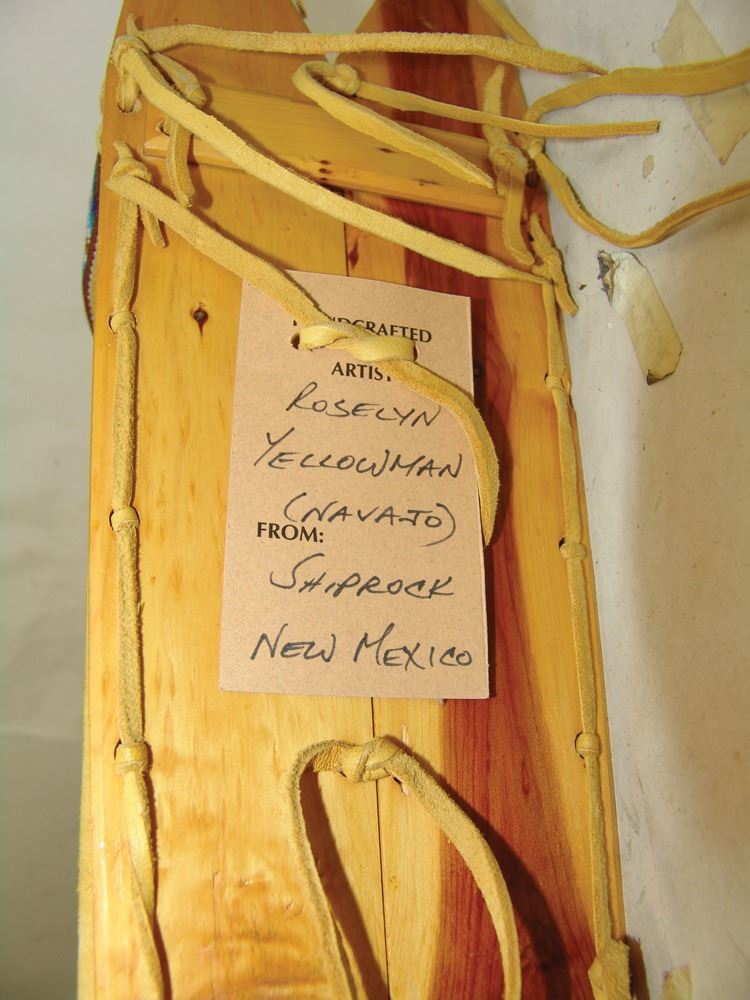 ARTIST
ROSELYN
YELLOWMAN
(NAVAJO)
FROM:
SHIPROCK
NEW MEXICO